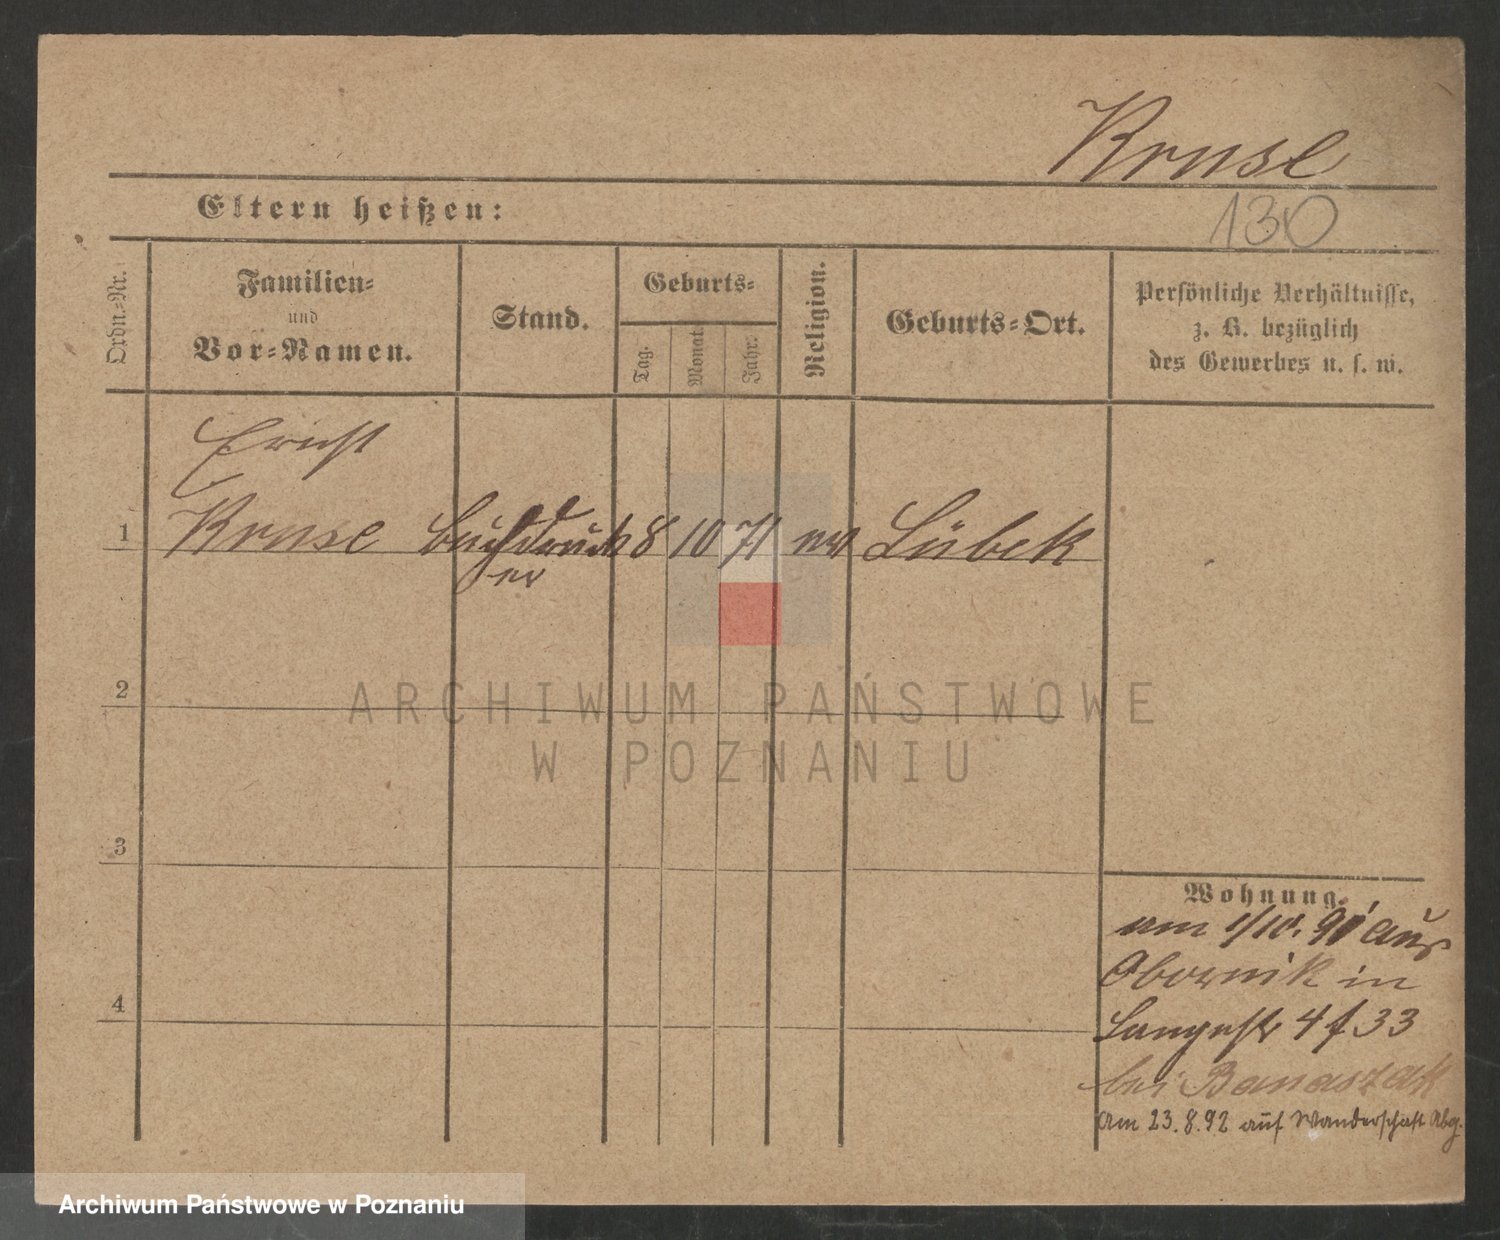 Kruse
Eltern heißen:
130
Ordn.-Nr.
Familien-
und
Vor-Namen.
Stand.
Geburts-
Tag.
Monat
Jahr.
Religion.
Geburts-Ort.
Persönliche Verhältnisse,
z. B. bezüglich
des Gewerbes u. s. w.
Ernst
1 Kruse Buchdruck 8 10 71 ev Lübek
er
2
ARCHIWUM PAŃSTWOWE
W POZNANIU
3
Wohnung.
am 1/10. 91 aus
Obornik in
Langestr 4 f 33
bei Banaszak
4
am 23.8.92 auf Wanderschaft Abg.
Archiwum Państwowe w Poznaniu